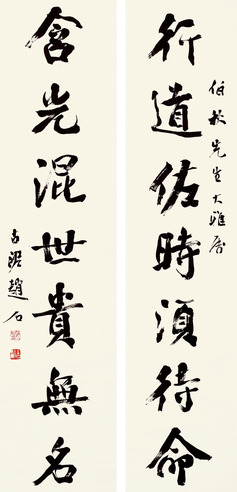 行道佐時須待命
伯秋先生大雅屬
含光混世貴無名
古泥趙石